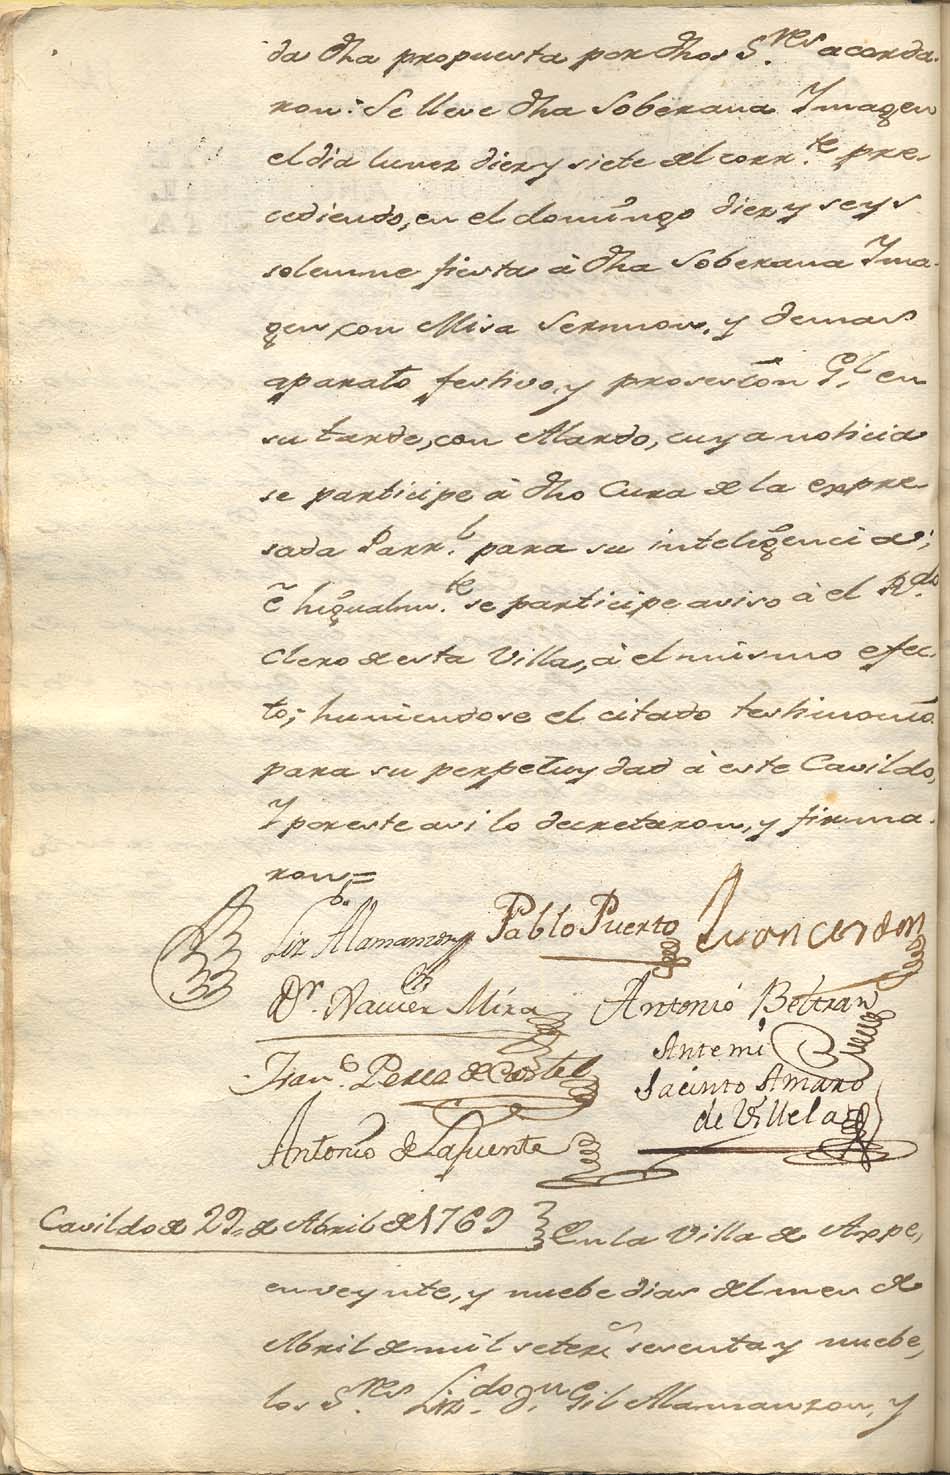 da dha propuesta por dhos S.res acorda-
ron: Se lleve dha Soberana Ymagen
el dia lunes diez y siete del corr.te pre-
cediendo, en el domingo diez y seys
solemne fiesta à dha Soberana Yma-
gen con Misa Sermon, y demas
aparato festivo, y prosesion G.l en
su tarde, con Alardo, cuya noticia
se participe à dho Cura de la expre-
sada Parr.l para su inteligencia;
è higualm.te se participe aviso à el R.do
Clero de esta Villa, à el mismo efec-
to; huniendose el citado testimonio
para su perpetuydad à este Cavildo,
Y por este asi lo decretaron, y firma-
ron =
Liz.do Alamanzon Pablo Puerto Juan Cerdan
Dr. Xavier Mira Antonio Beltran
Ante mi
Fran.co Perez de Castel Jacinto Amaro
de Villela
Antonio de Lafuente
Cavildo de 29. de Abril de 1769 En la Villa de Aspe,
en veynte, y nuebe dias del mes de
Abril de mil setec.s sesenta y nuebe,
los S.res Liz.do D.n Gil Alamanzon, y